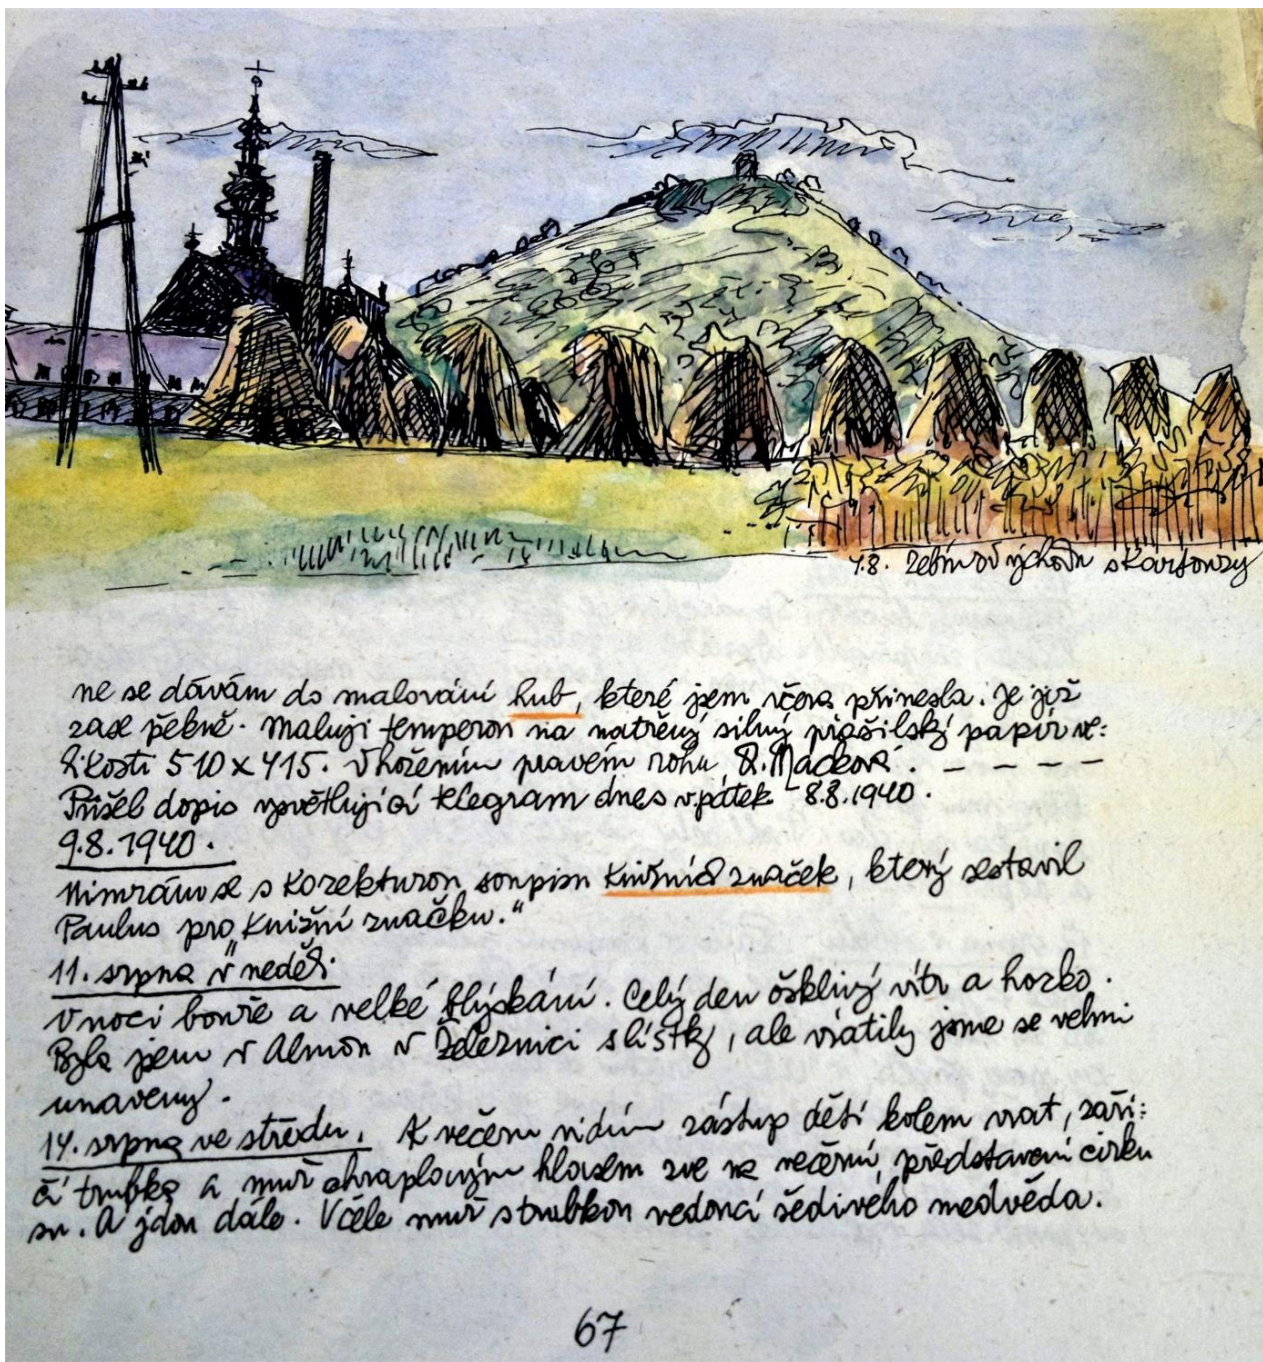 4.8. Zebín od východu s Kartouzy
ne se dávám do malování hub, které jsem včera přinesla. Je již
zase pěkně. Maluji temperou na natřený silný prášilský papír ve=
likosti 510 x 415. V hořením pravém rohu R. Macková. – – – –
Přišel dopis vysvětlující telegram dnes v pátek 8.8.1940.
9.8.1940.
Nimrám se s korekturou soupisu knižních značek, který sestavil
Paulus pro „Knižní značku."
11. srpna v neděli.
V noci bouře a velké blýskání. Celý den ošklivý vítr a horko.
Byla jem v Almou v Železnici s lístky, ale vrátily jsme se velmi
unaveny.
14. srpna ve středu. K večeru vidím zástup dětí kolem vrat, zaři=
čí trubka a muž ochraplovým hlasem zve na večerní představení cirku
su. A jdou dále. V čele muž s trubkou vedoucí šedivého medvěda.
67